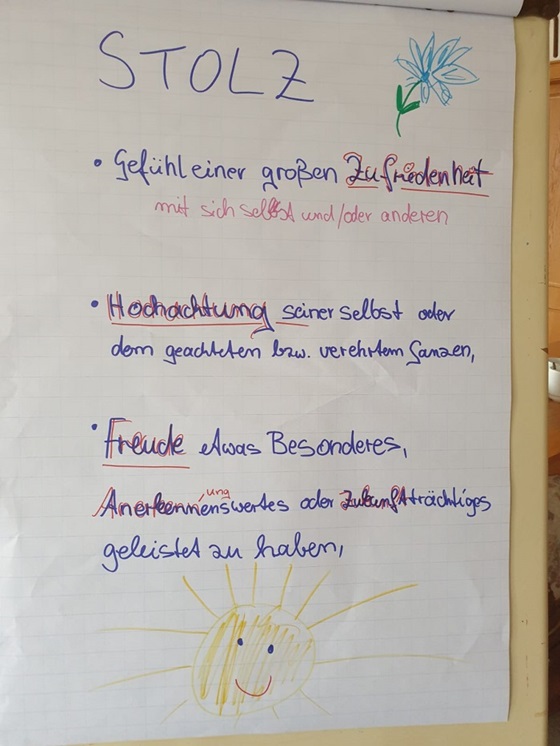 STOLZ
• Gefühl einer großen Zufriedenheit
mit sich selbst und/oder anderen
• Hochachtung seiner selbst oder
dem geachteten bzw. verehrtem Ganzen,
• Freude etwas Besonderes,
ung
Anerkennenswertes oder Zukunftträchtiges
geleistet zu haben,